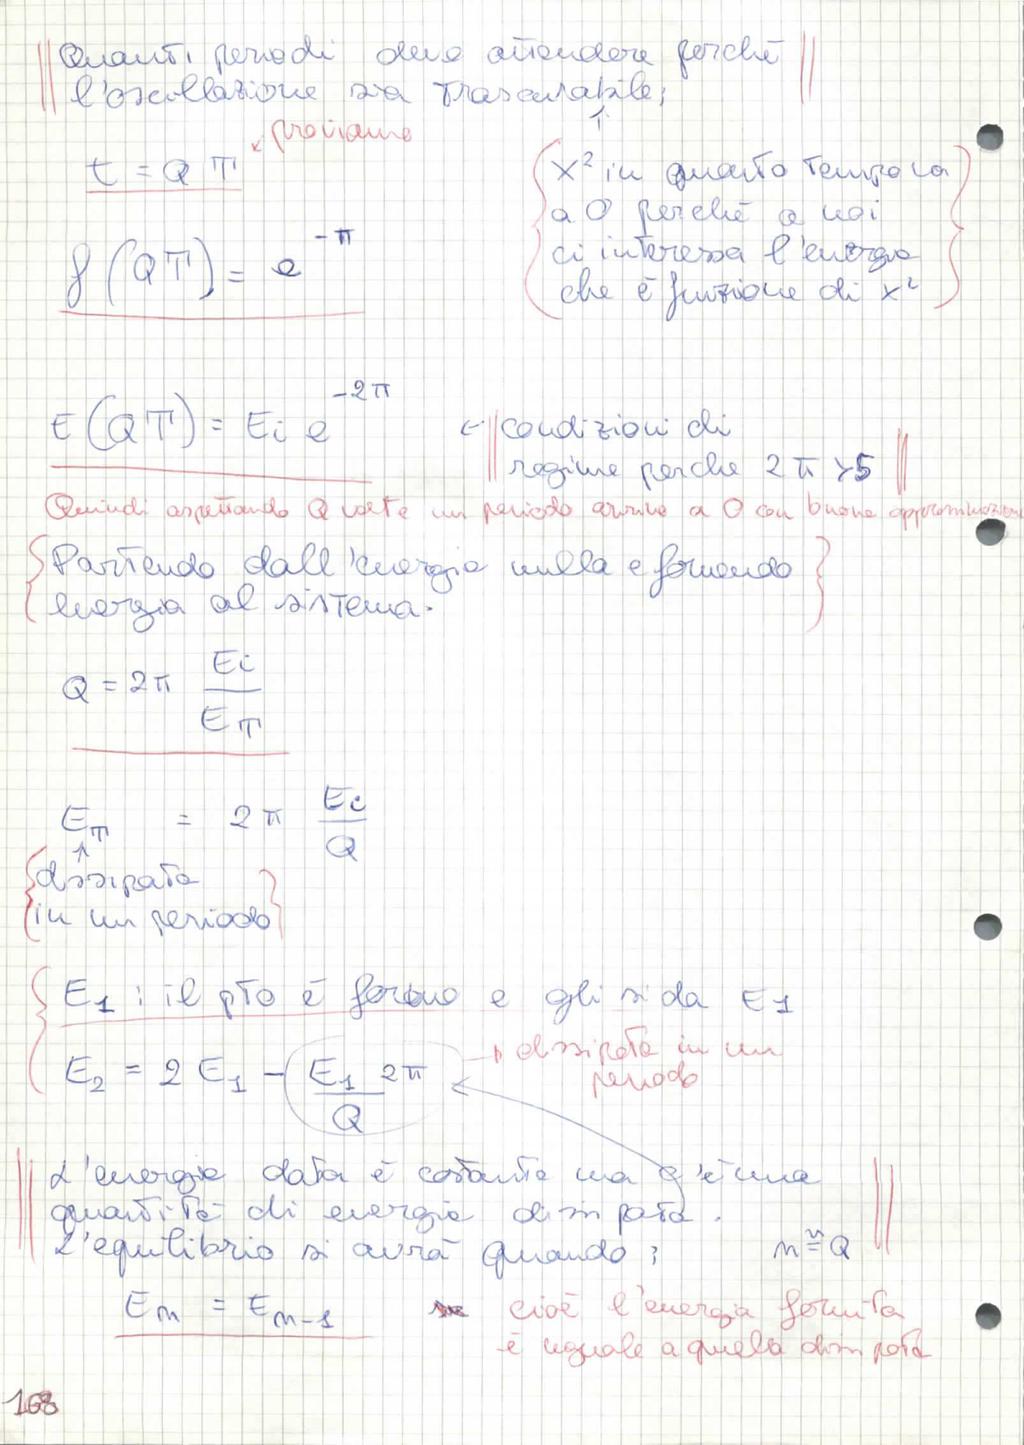 Quanti periodi devo attendere perché
l'oscillazione sia trascurabile;
t = Q T
proviamo
f(QT) = e^-π
x² in quanto tempo va
a 0 perché a noi
ci interessa l'energia
che è funzione di x²
E(QT) = Ei e^-2π
← condizioni di
regime perche 2π >5
Quindi aspettando Q volte un periodo arrivo a 0 con buona approssimazione
Partendo dall'energia nulla e fornendo
energia al sistema.
Q = 2π Ei / E_T
E_T = 2π Ei / Q
↑
dissipata
in un periodo
E1 : il pto è fermo e gli si da E1
E2 = 2 E1 - E1 2π / Q
→ dissipata in un
periodo
L'energia data è costante ma c'è una
quantità di energia dissipata.
L'equilibrio si avrà quando; n ≅ Q
En = En-1
cioè l'energia fornita
è uguale a quella dissipata
168